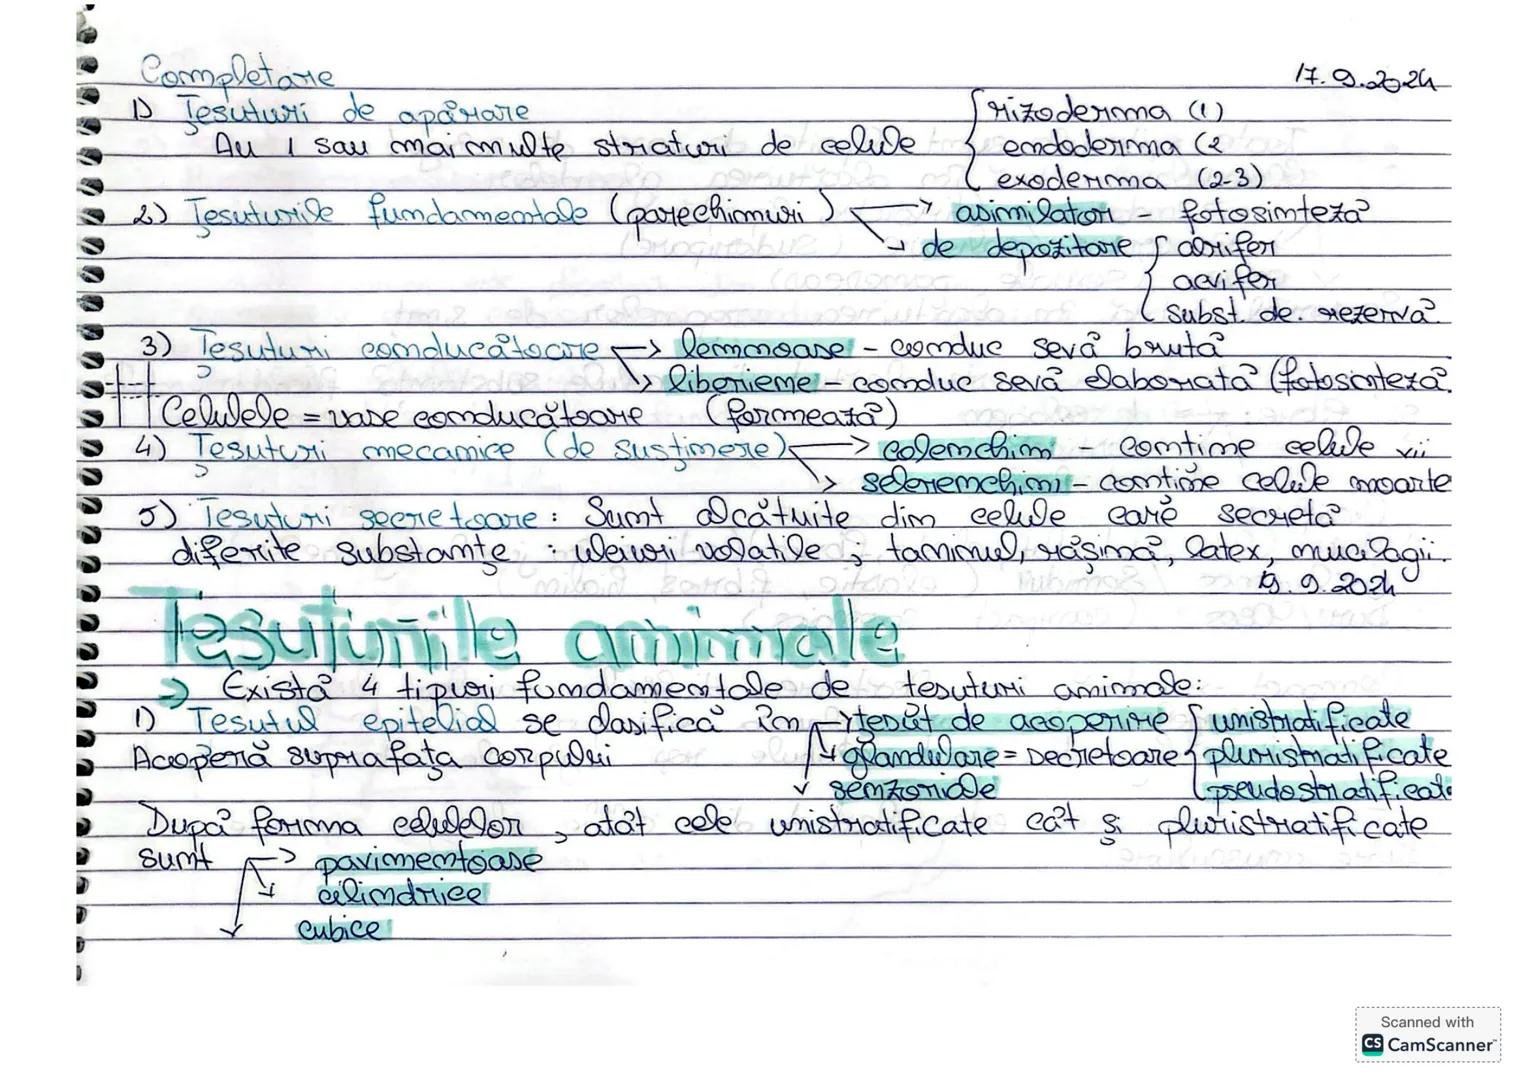 Completare 17.9.2024
1) Țesuturi de apărare { rizoderma (1)
Au 1 sau mai multe straturi de celule endoderma (2
exoderma (2-3)
2) Țesuturile fundamentale (parechimuri) → asimilatori - fotosinteză
→ de depozitare { aerifer
acvifer
subst. de. rezervă
3) Țesuturi conducătoare → lemnoase - conduc sevă brută
→ liberiene - conduc sevă elaborată (fotosinteză.
Celulele = vase conducătoare (formează)
4) Țesuturi mecanice (de susținere) → colenchim - conține celule vii
→ sclerenchim - conține celule moarte
5) Țesuturi secretoare: Sunt alcătuite din celule care secretă
diferite substanțe : uleiuri volatile, taninul, rășină, latex, mucilagii.
19.9.2024
Țesuturile animale
→ Există 4 tipuri fundamentale de tesuturi animale:
1) Tesutul epitelial se clasifică în → tesut de acoperire { unistratificate
Acoperă suprafața corpului → glandulare = secretoare pluristratificate
→ senzoriale pseudostratificate
După forma celulelor, atât cele unistratificate cât și pluristratificate
sunt → pavimentoase
→ cilindrice
→ cubice
Scanned with
CS CamScanner